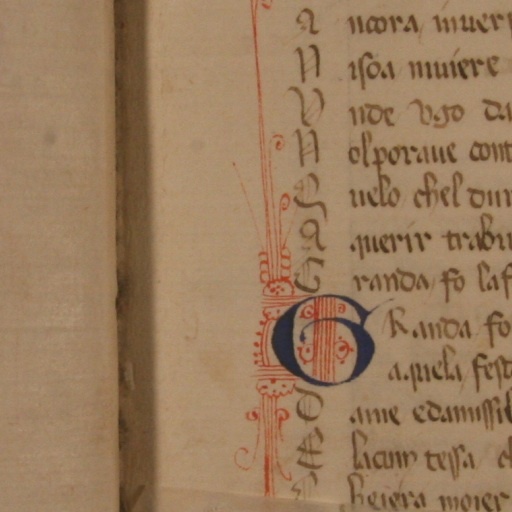 A ncora inuer
N isoa muiere
V nde vgo da
N olporaue cont
Q uelo chel dur
A querir trabu
G randa fo laf
G Randa fo
aquela fest
D ame edamissil
E lacum tessa ch
heiera moier